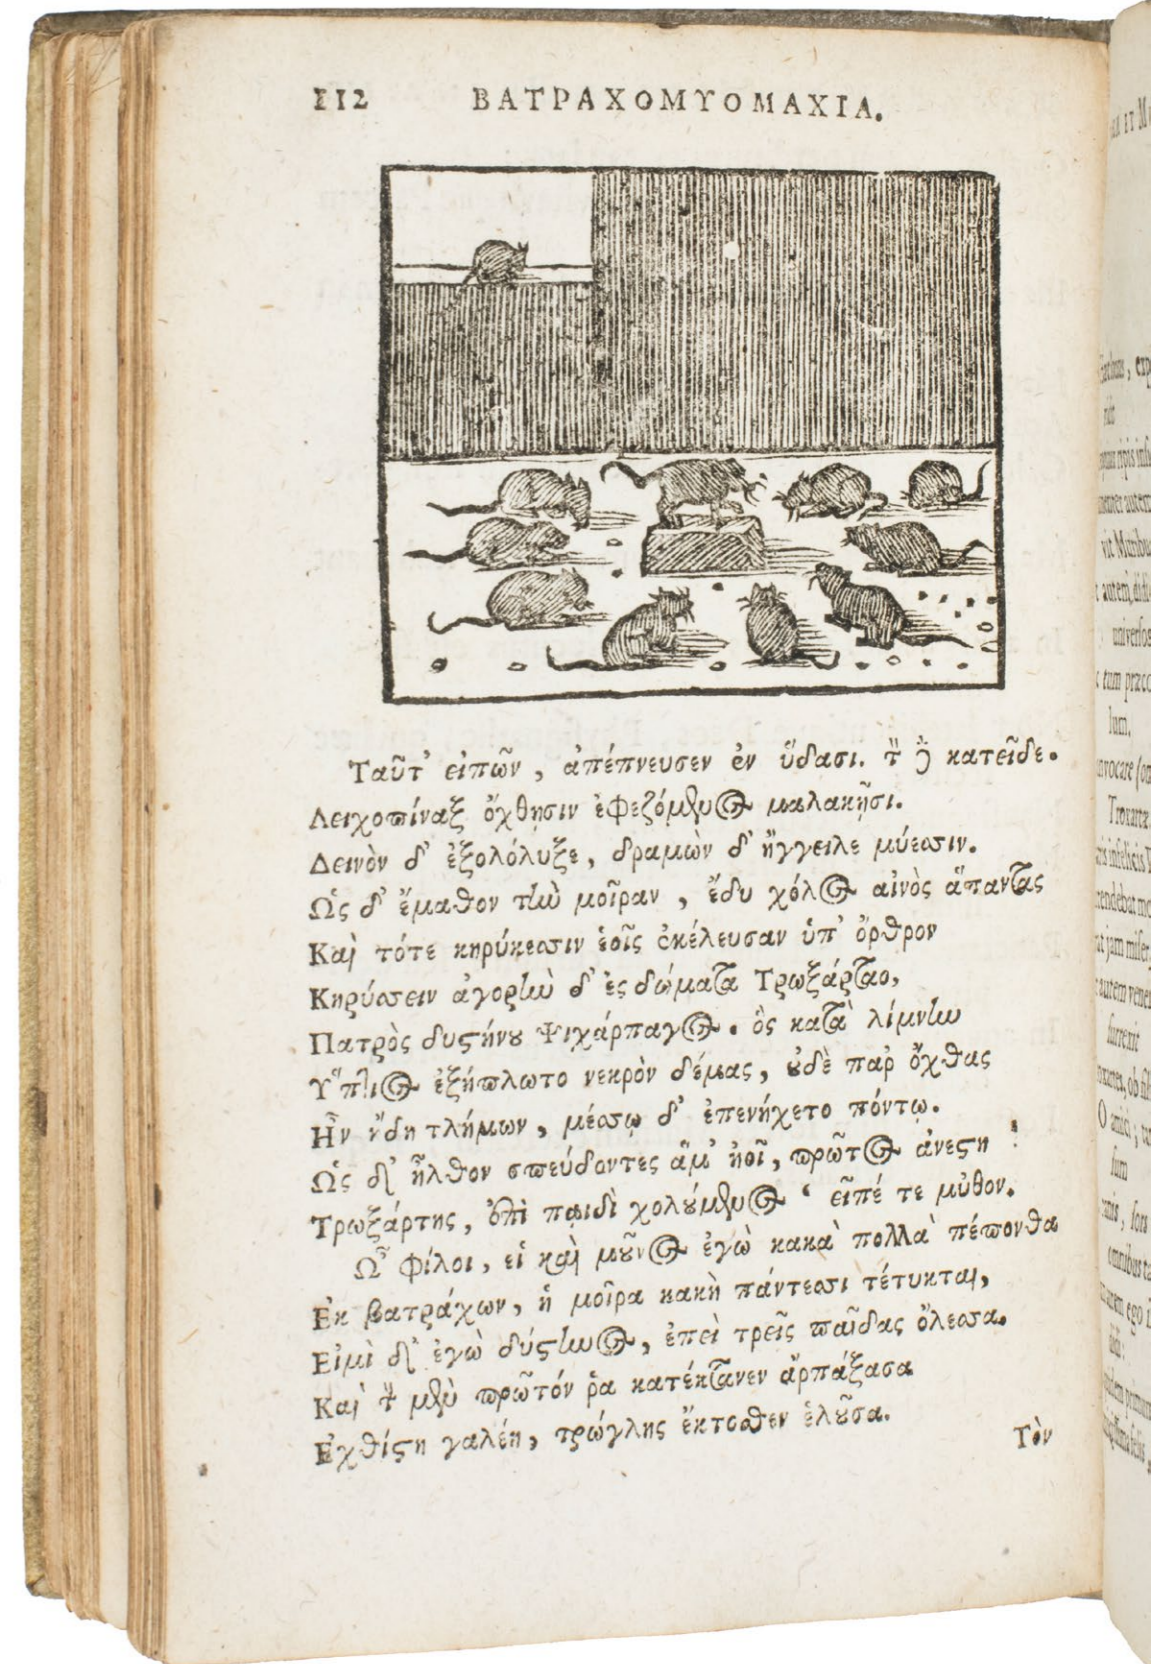 112 ΒΑΤΡΑΧΟΜΥΟΜΑΧΙΑ.
Ταῦτ' εἰπῶν, ἀπέπνευσεν ἐν ὕδασι. τ̀ ὃ κατεῖδε.
Λειχοπίναξ ὄχθησιν ἐφεζόμενος μαλακῇσι.
Δεινὸν δ' ἐξολόλυξε, δραμὼν δ' ἤγγειλε μύεσσιν.
Ὡς δ' ἔμαθον τὴν μοῖραν, ἔδυ χόλος αἰνὸς ἅπαντας
Καὶ τότε κηρύκεσσιν ἑοῖς ἐκέλευσαν ὑπ' ὄρθρον
Κηρύσσειν ἀγορὴν δ' ἐς δώματα Τρωξάρταο,
Πατρὸς δυστήνου Ψιχάρπαγος. ὃς κατὰ λίμνην
Ὕπτιος ἐξήπλωτο νεκρὸν δέμας, οὐδὲ παρ' ὄχθας
Ἦν ἤδη τλήμων, μέσσῳ δ' ἐπενήχετο πόντῳ.
Ὡς δ' ἦλθον σπεύδοντες ἅμ' ἠοῖ, πρῶτος ἀνέστη
Τρωξάρτης, ἐπὶ παιδὶ χολούμενος· εἶπέ τε μῦθον.
Ὦ φίλοι, εἰ καὶ μοῦνος ἐγὼ κακὰ πολλὰ πέπονθα
Ἐκ βατράχων, ἡ μοῖρα κακὴ πάντεσσι τέτυκται,
Εἰμὶ δ' ἐγὼ δύστηνος, ἐπεὶ τρεῖς παῖδας ὄλεσσα.
Καὶ τὸν μὲν πρῶτόν ῥα κατέκτανεν ἁρπάξασα
Ἐχθίστη γαλέη, τρώγλης ἔκτοσθεν ἑλοῦσα.
Τὸν